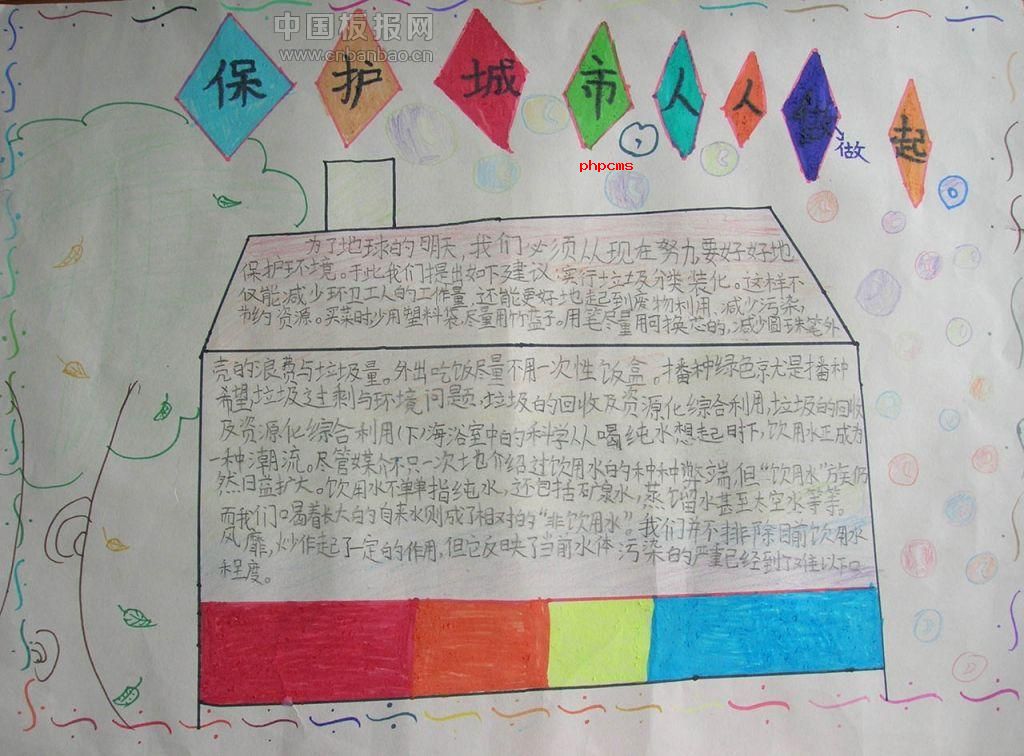 中国板报网
www.cnbanbao.cn
保护城市,人人做起
做
phpcms
为了地球的明天,我们必须从现在努力,要好好地
保护环境。于此我们提出如下建议:实行垃圾分类装化。这样不
仅能减少环卫工人的工作量,还能更好地起到废物利用,减少污染,
节约资源。买菜时少用塑料袋,尽量用竹篮子。用笔尽量用可换芯的,减少圆珠笔外
壳的浪费与垃圾量。外出吃饭尽量不用一次性饭盒。播种绿色京尤是播种
希望垃圾过剩与环境问题,垃圾的回收及资源化综合利用,垃圾的回收
及资源化综合利用(下)海浴室中的科学人人喝纯水想起时下,饮用水正成为
一种潮流。尽管媒介不只一次地介绍过饮用水的种种弊端,但“饮用水”族仍
然日益扩大。饮用水不单单指纯水,还包括矿泉水,蒸馏水甚至太空水等等。
而我们喝着长大的自来水则成了相对的“非饮用水”。我们并不排除目前饮用水
风靡,炒作起了一定的作用,但它反映了当前水体污染的严重已经到了难以
程度。